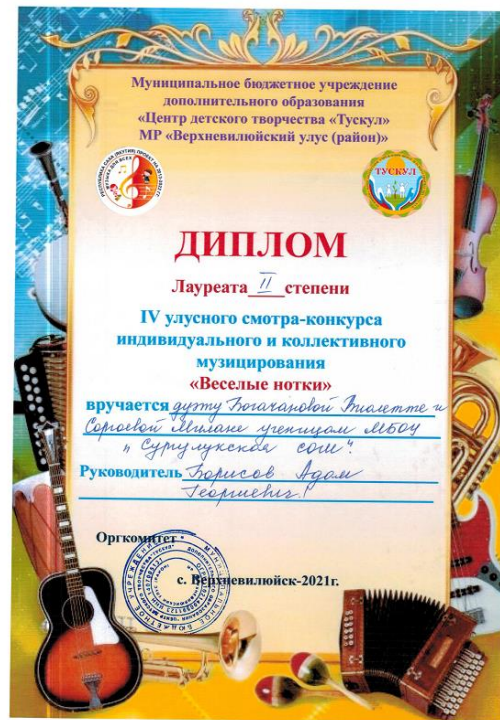 Муниципальное бюджетное учреждение
дополнительного образования
«Центр детского творчества «Тускул»
МР «Верхневилюйский улус (район)»
РЕСПУБЛИКА САХА (ЯКУТИЯ) ПРОЕКТ НА 2013-2021гг.
МУЗЫКА ДЛЯ ВСЕХ
ТУСКУЛ
ДИПЛОМ
Лауреата II степени
IV улусного смотра-конкурса
индивидуального и коллективного
музицирования
«Веселые нотки»
вручается дуэту Богачановой Виолетте и
Сергеевой Милане ученицам МБОУ
"Сургулукская сош".
Руководитель Борисов Адам
Георгиевич!
Оргкомитет
с. Верхневилюйск-2021г.